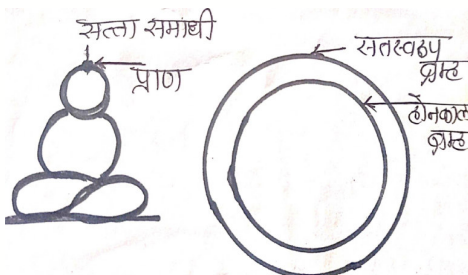 सत्ता समाधी
प्राण
सतस्वरुप
ब्रम्ह
होनकाल
ब्रम्ह